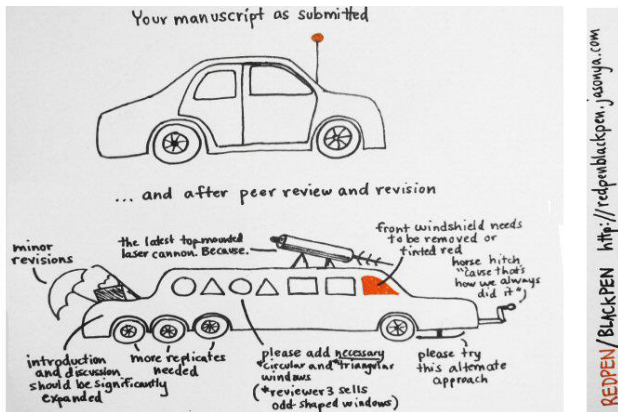 Your manuscript as submitted
... and after peer review and revision
minor
revisions
the latest top-mounted
laser cannon. Because.
front windshield needs
to be removed or
tinted red
horse hitch
"'cause that's
how we always
did it";
introduction
and discussion
should be significantly
expanded
more replicates
needed
please add necessary
*circular and *triangular
windows
(*reviewer 3 sells
odd-shaped windows)
please try
this alternate
approach
REDPEN/BLACKPEN http://redpenblackpen.jasonya.com